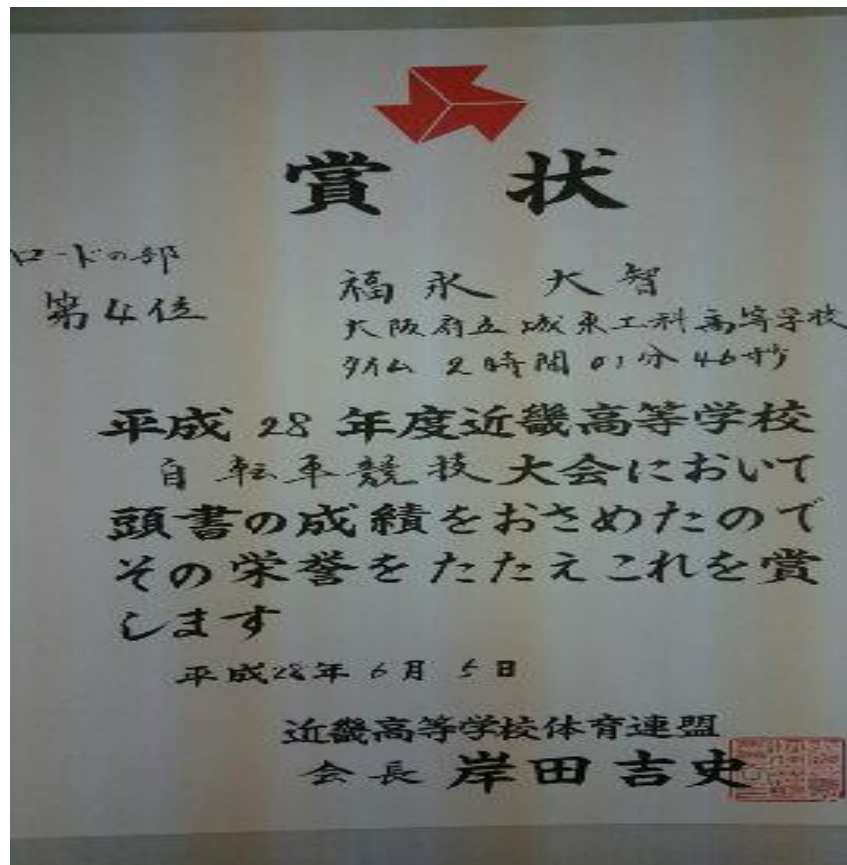 賞状
ロードの部
第4位
福永大智
大阪府立城東工科高等学校
タイム 2時間01分46秒
平成28年度近畿高等学校
自転車競技大会において
頭書の成績をおさめたので
その栄誉をたたえこれを賞
します
平成28年6月5日
近畿高等学校体育連盟
会長 岸田吉史